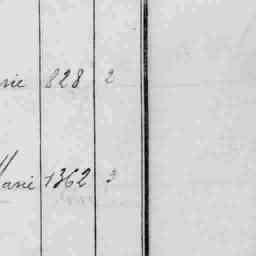 828 2
Marie 1362 3